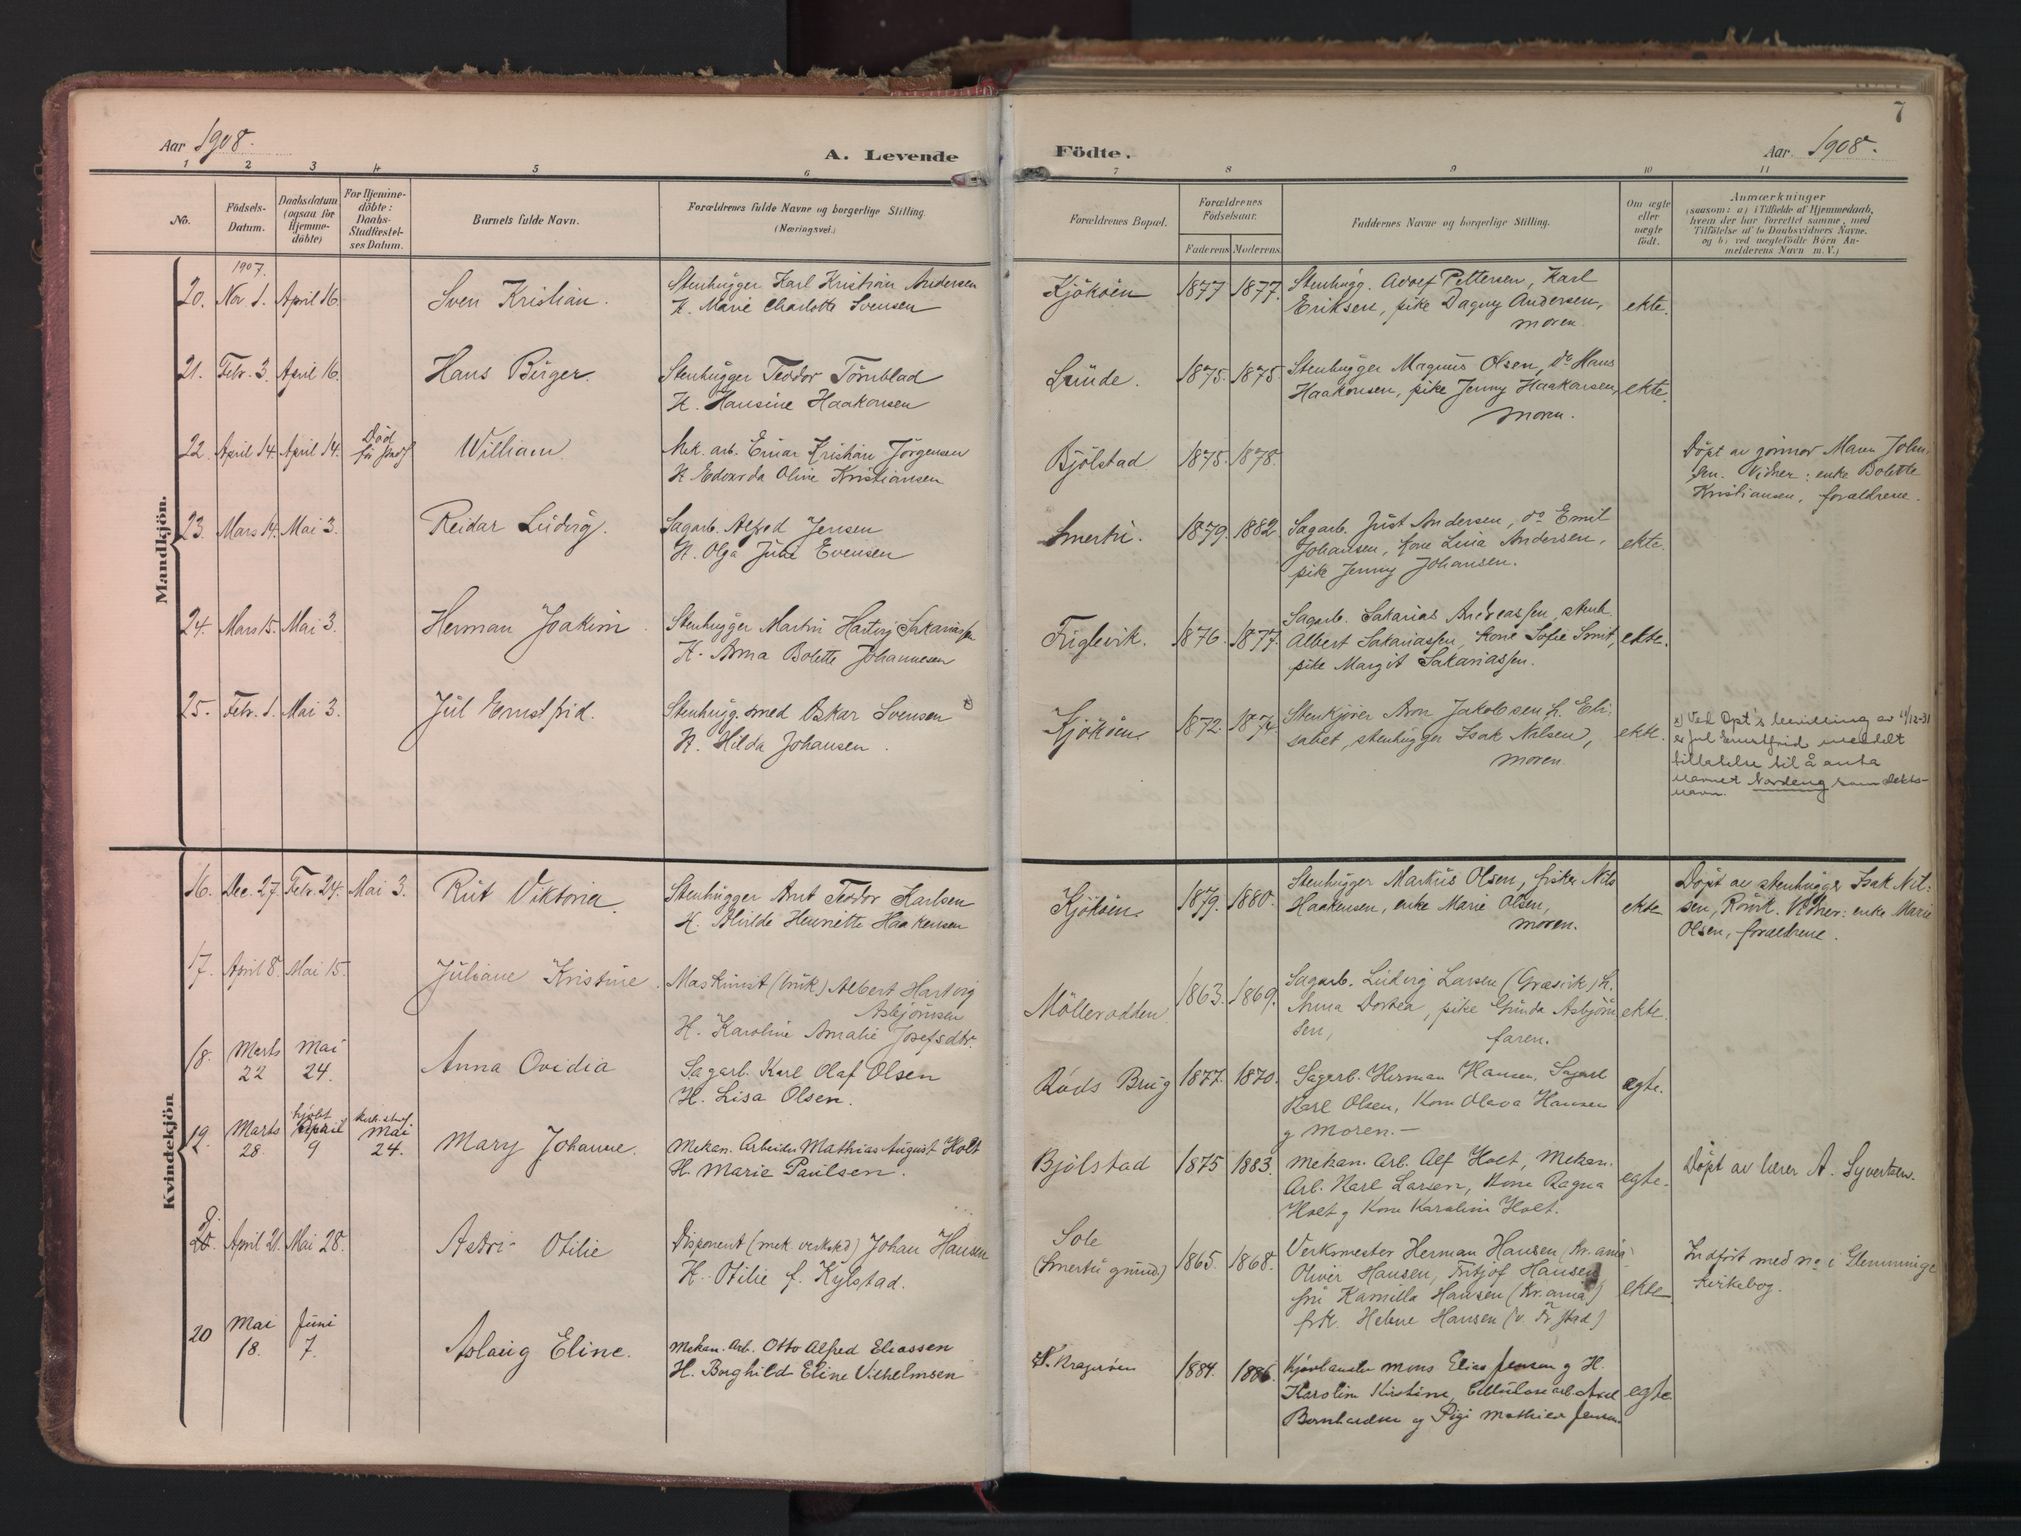 7
Aar 1908.
A. Levende
Födte.
Aar 1908.
1 2 3 4 5 6 7 8 9 10 11
No.
Födsels-
Datum.
Daabsdatum
(ogsaa for
Hjemme-
döbte)
For Hjemme-
döbte:
Daabs-
Stadfæstel-
ses Datum.
Barnets fulde Navn.
Forældrenes fulde Navne og borgerlige Stilling.
(Næringsvei.)
Forældrenes Bopæl.
Forældrenes
Födselsaar.
Faderens Moderens
Faddernes Navne og borgerlige Stilling.
Om ægte
eller
uægte
født.
Anmærkninger
(saasom: a) i Tilfælde af Hjemmedaab,
hvem der har forrettet samme, med
Tilföielse af to Daabsvidners Navne,
og b) ved uægtefödte Börn An-
melderens Navn m. V.)
Mandkjön.
1907.
20. Nov. 1. April 16. Sven Kristian.
Stenhugger Karl Kristian Andersen
H. Marie Charlotte Svensen
Kjököen 1877 1877.
Stenhugg. Adolf Pettersen, Karl
Eriksen, pike Dagny Andersen,
moren.
ekte.
21. Febr. 3. April 16. Hans Birger.
Stenhugger Teodor Törnblad
H. Hansine Haakonsen
Lunde. 1875. 1875.
Stenhugger Magnus Olsen, do Hans
Haakonsen, pike Jenny Haakonsen,
moren.
ekte.
22. April 14. April 14. Död
William.
Mek. arb. Einar Kristian Jörgensen
H. Edvarda Oline Kristiansen
Bjölstad 1875. 1878.
Döpt av jormor Maren John-
sen. Vidner: enke Bolette
Kristiansen, forældrene.
23. Mars 14. Mai 3. Reidar Ludvig.
Sagarb. Alfred Jensen
H. Olga Evensen
Smertu. 1879. 1882.
Sagarb. Just Andersen, do Emil
Johansen, kone Lina Andersen,
pike Jenny Johansen.
ekte.
24. Mars 15. Mai 3. Herman Joakim.
Stenhugger Martin Hartvig Sakariassen
H. Anna Bolette Johannesen
Fuglevik. 1876. 1877.
Sagarb. Sakarias Andreassen, stenh.
Albert Sakariassen, kone Sofie Smit,
pike Margit Sakariassen.
ekte.
25. Febr. 1. Mai 3. Jul Ernstfrid.
Stenhugg. smed Oskar Svensen x)
H. Hilda Johansen.
Kjököen. 1872. 1874.
Stenkjörer Aron Jakobsen h. Eli-
sabet, stenhugger Isak Nilsen,
moren.
ekte.
x) Ved Dpt's bevilling av 11/12-31
er Jul Ernstfrid meddelt
tillatelse til å anta
navnet Nordeng som slekts-
navn.
Kvindekjön
16. Dec. 27. Febr. 24. Mai 3. Rut Viktoria.
Stenhugger Arnt Teodor Karlsen
H. Hilde Henriette Haakensen
Kjököen. 1879. 1880.
Stenhugger Markus Olsen, fisker Nils
Haakensen, enke Marie Olsen,
moren.
ekte
Döpt av stenhugger Isak Nil-
sen, Rörvik. Vidner: enke Marie
Olsen, forældrene.
17. April 8. Mai 15. Juliane Kristine.
Maskinist (bruk) Albert Hartvig
Asbjörnsen
H. Karoline Amalie Josefsdtr.
Möllerodden. 1863. 1869.
Sagarb. Ludvig Larsen (Græsvik) h.
Anna Dortea, pike Gunda Asbjörn-
sen,
faren.
ekte.
18. Marts
22
Mai
24.
Anna Ovidia
Sagarb. Karl Olaf Olsen
H. Lisa Olsen.
Röds Brug 1877. 1870.
Sagarb. Herman Hansen, Sagarb
Karl Olsen, Kone Olava Hansen
g Moren.—
ægte.
19. Marts
28
hjdbt
April
9
Mai
24.
Mary Johanne.
Mekan. Arbeider Mathias August Holt
H. Marie Paulsen.
Bjölstad 1875 1883.
Mekan. Arb. Alf Holt, Mekan.
Arb. Karl Larsen, Kone Ragna
Holt g Kone Karoline Holt.
egte.
Döpt av lærer A. Syvertsen.
April 21. Mai 28. Astri Otilie
Disponent (mek. verksted) Johan Hansen
H. Otilie f. Kylstad.
Sole
(Smertu grund.) 1865. 1868.
Verksmester Herman Hansen (Kr.ania
Oliver Hansen, Fritjof Hansen
fru Kamilla Hansen (Kr.ania)
frk. Helene Hansen (v. Fr.stad)
ekte.
Indfört med no i Glemminge
kirkebog.
20 Mai
18.
Juni
7.
Aslaug Eline.
Mekan. Arb. Otto Alfred Eliassen
H. Borghild Eline Vilhelmsen
Kragerøen 1884. 1886.
Mons Elias Jensen g H.
Karoline Kirstine, Cellulosearb. Axel
Bernhardsen og Pige Mathilde Jensen
egte.